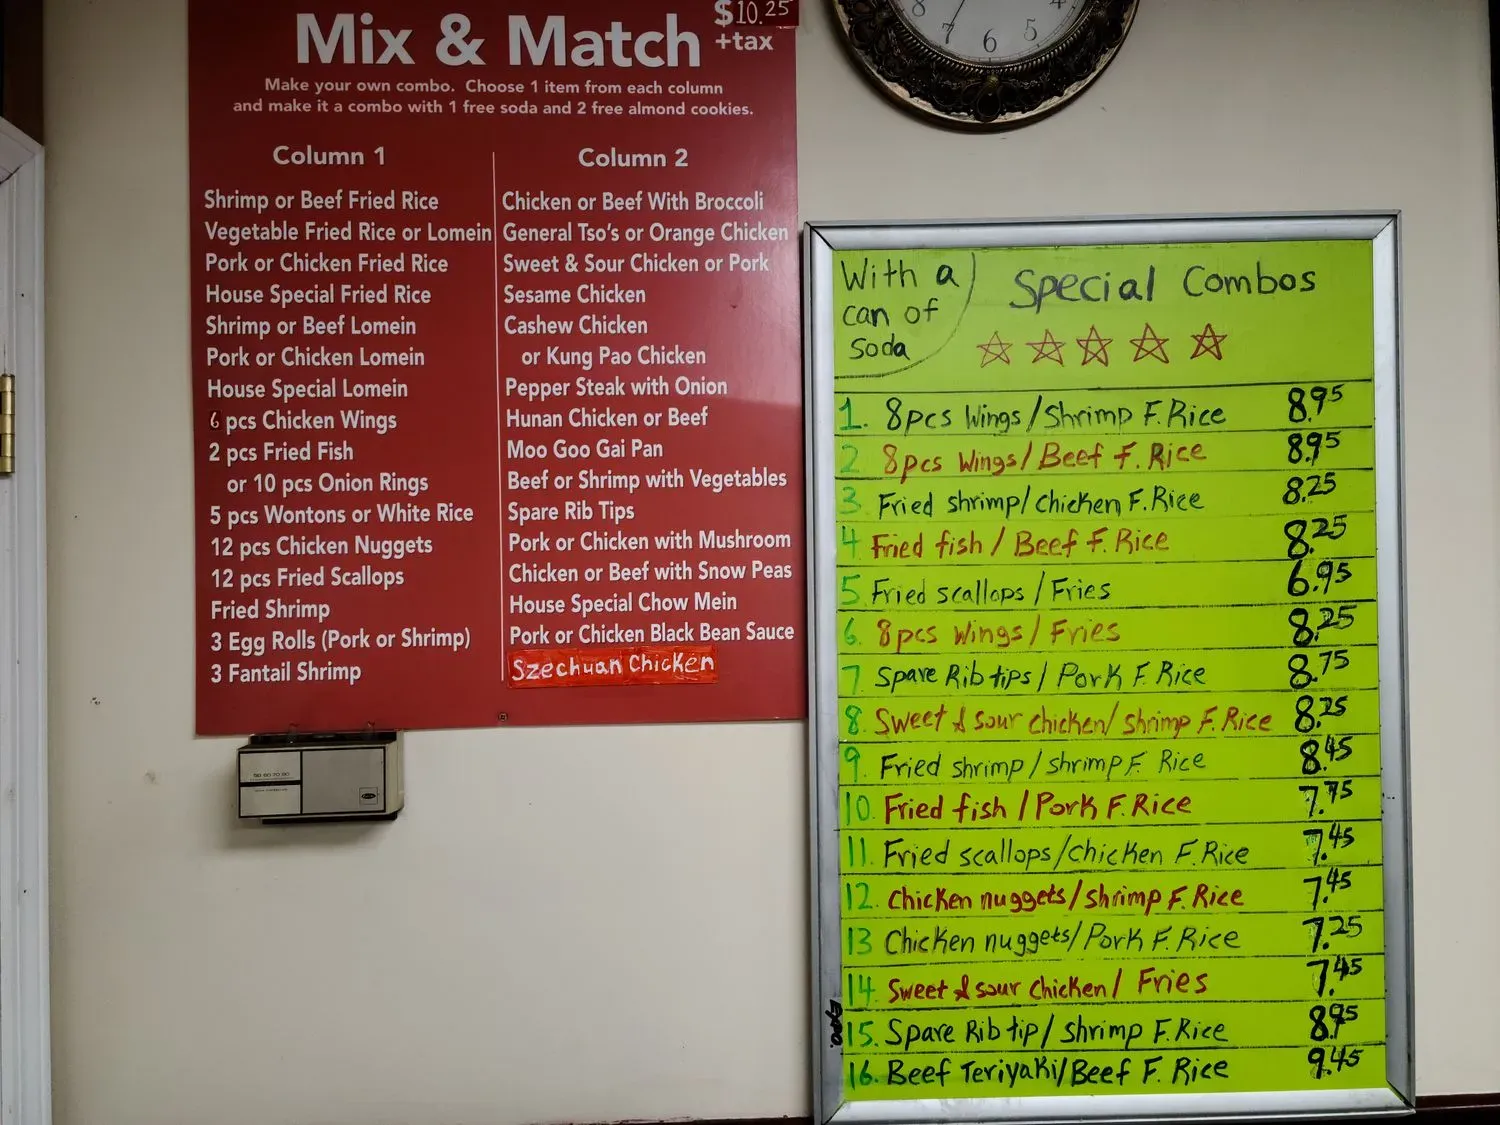 Mix & Match
$10.25
+tax
Make your own combo. Choose 1 item from each column
and make it a combo with 1 free soda and 2 free almond cookies.
Column 1
Shrimp or Beef Fried Rice
Vegetable Fried Rice or Lomein
Pork or Chicken Fried Rice
House Special Fried Rice
Shrimp or Beef Lomein
Pork or Chicken Lomein
House Special Lomein
6 pcs Chicken Wings
2 pcs Fried Fish
or 10 pcs Onion Rings
5 pcs Wontons or White Rice
12 pcs Chicken Nuggets
12 pcs Fried Scallops
Fried Shrimp
3 Egg Rolls (Pork or Shrimp)
3 Fantail Shrimp
Column 2
Chicken or Beef With Broccoli
General Tso's or Orange Chicken
Sweet & Sour Chicken or Pork
Sesame Chicken
Cashew Chicken
or Kung Pao Chicken
Pepper Steak with Onion
Hunan Chicken or Beef
Moo Goo Gai Pan
Beef or Shrimp with Vegetables
Spare Rib Tips
Pork or Chicken with Mushroom
Chicken or Beef with Snow Peas
House Special Chow Mein
Pork or Chicken Black Bean Sauce
Szechuan Chicken
8 7 6 5 4
50 60 70 80
With a
can of
Soda
Special Combos
1. 8pcs Wings/Shrimp F.Rice 8.95
2 8pcs Wings/Beef F. Rice 8.95
3 Fried shrimp/chicken F.Rice 8.25
4 Fried fish / Beef F. Rice 8.25
5 Fried scallops / Fries 6.95
6. 8pcs Wings/ Fries 8.25
7 Spare Rib tips / Pork F. Rice 8.75
8. Sweet & sour chicken/ shrimp F. Rice 8.25
9. Fried shrimp / shrimp F. Rice 8.45
10. Fried fish / Pork F. Rice 7.75
11. Fried scallops/chicken F. Rice 7.45
12. Chicken nuggets/shrimp F. Rice 7.45
13 Chicken nuggets/Pork F. Rice 7.25
14 Sweet & sour chicken/ Fries 7.45
15. Spare Rib tip/ shrimp F.Rice 8.95
16. Beef Teriyaki/Beef F. Rice 9.45
EXPO.